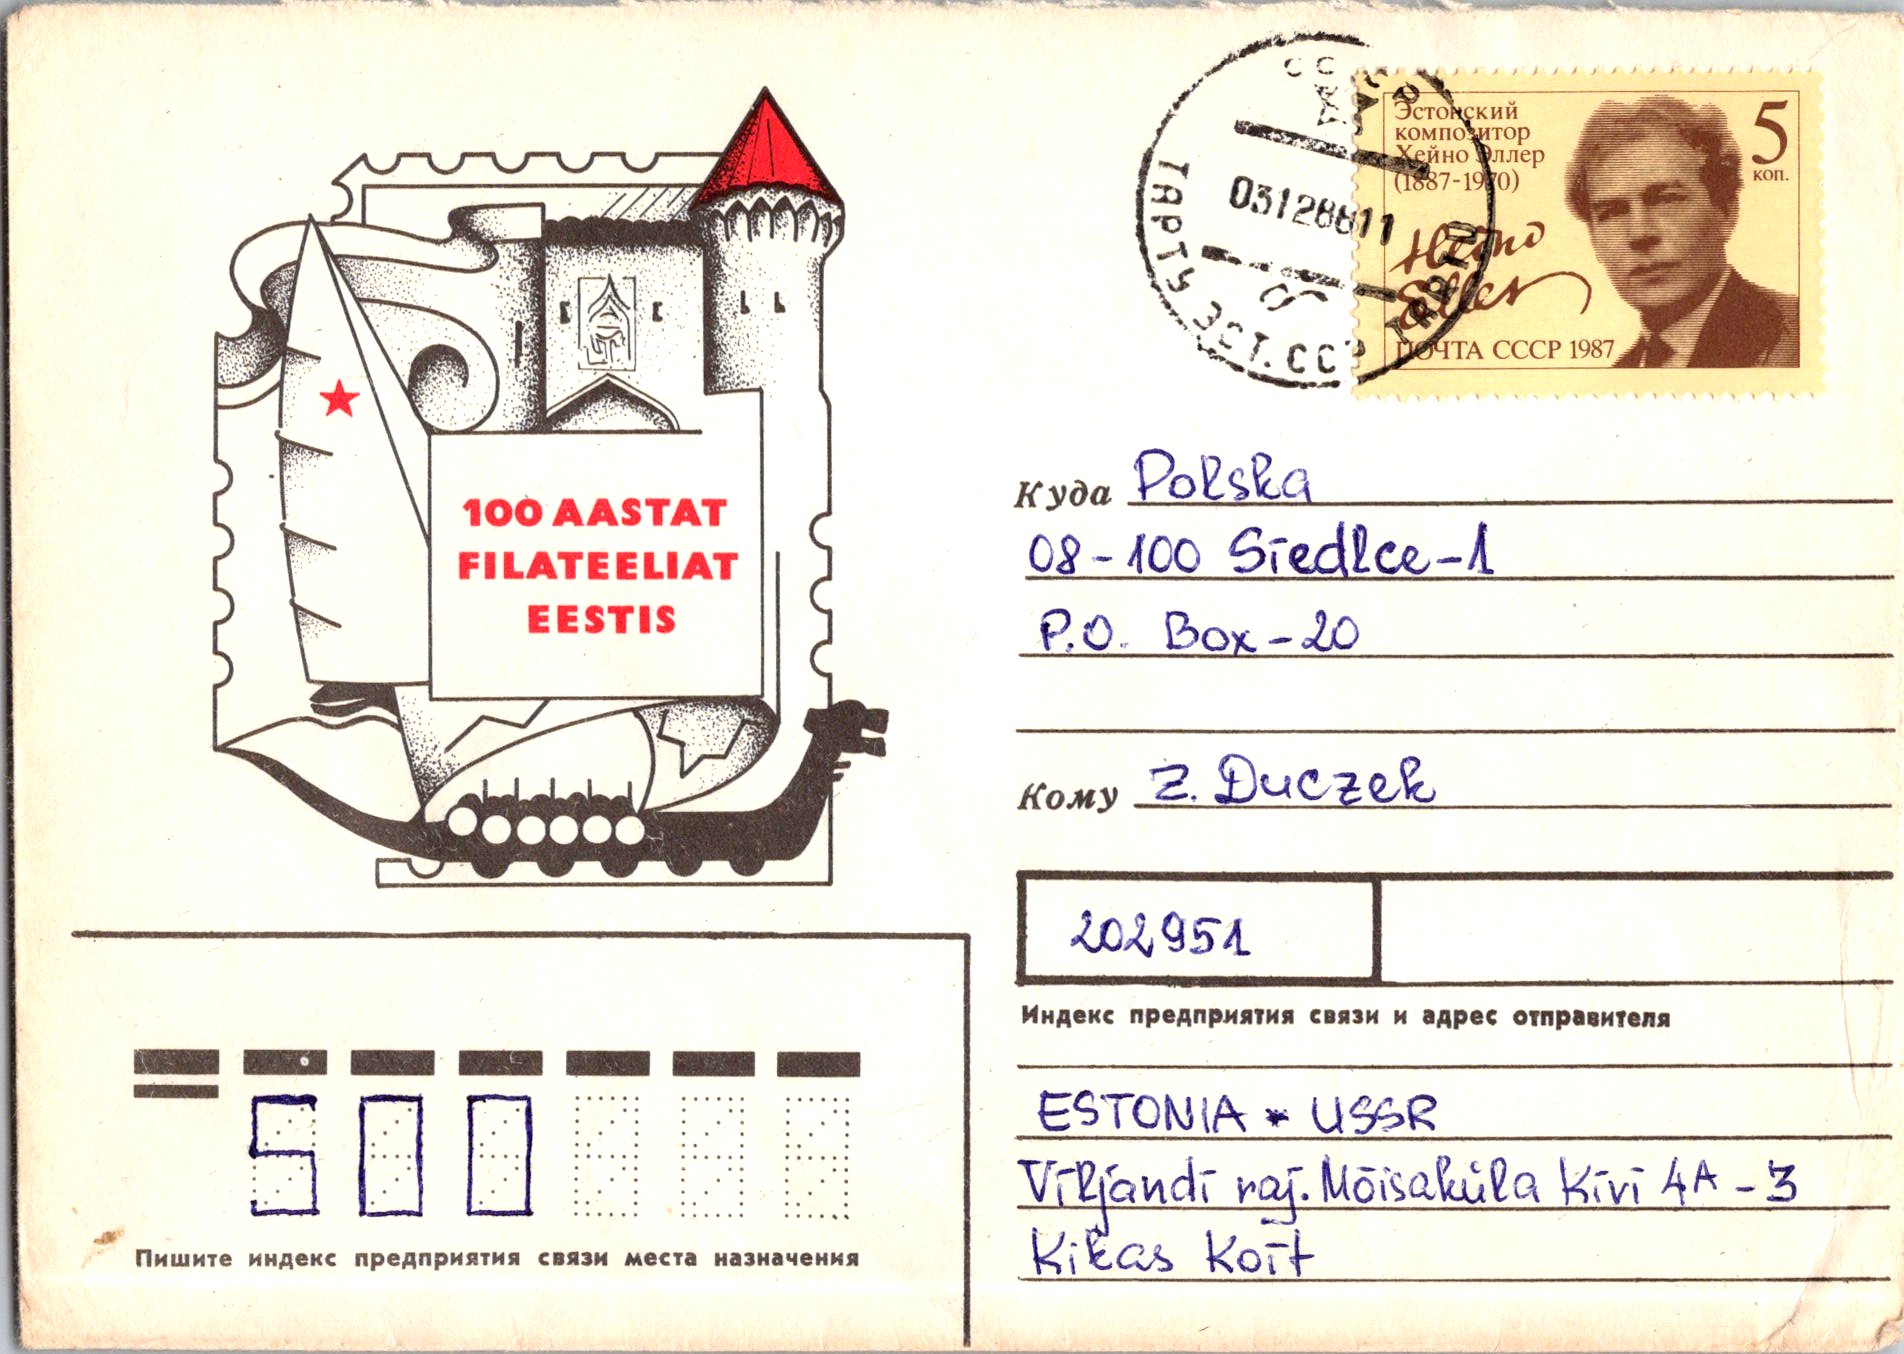 СССР
ТАРТУ ЭСТ. ССР TARTU
03128811
б
Эстонский
композитор
Хейно Эллер
(1887-1970)
5
коп.
Heino
Eller
ПОЧТА СССР 1987
100 AASTAT
FILATEELIAT
EESTIS
Куда Polska
08-100 Siedlce-1
P.O. Box-20
Кому Z. Duczek
202951
Индекс предприятия связи и адрес отправителя
ESTONIA * USSR
Viljandi raj. Mõisaküla Kivi 4A-3
Kikas Koit
500
Пишите индекс предприятия связи места назначения